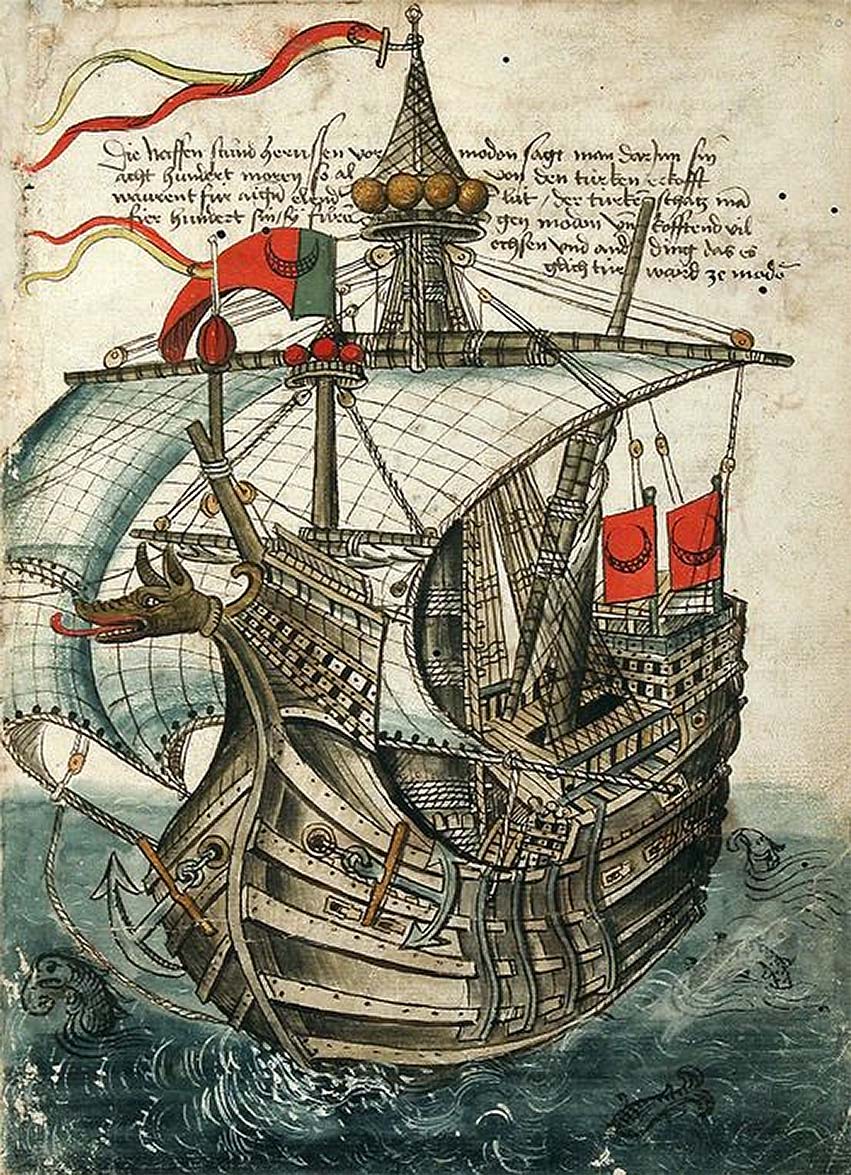 Die Naffen stund herussen vor modon sagt man darjnn sin
acht hundert moren so al von den türken erkofft
warent für aigen lüt / der türken schatz
hier hundert gen modon vnd kofftend vil
ochsen vnd ander ding das es
glich ward ze modon